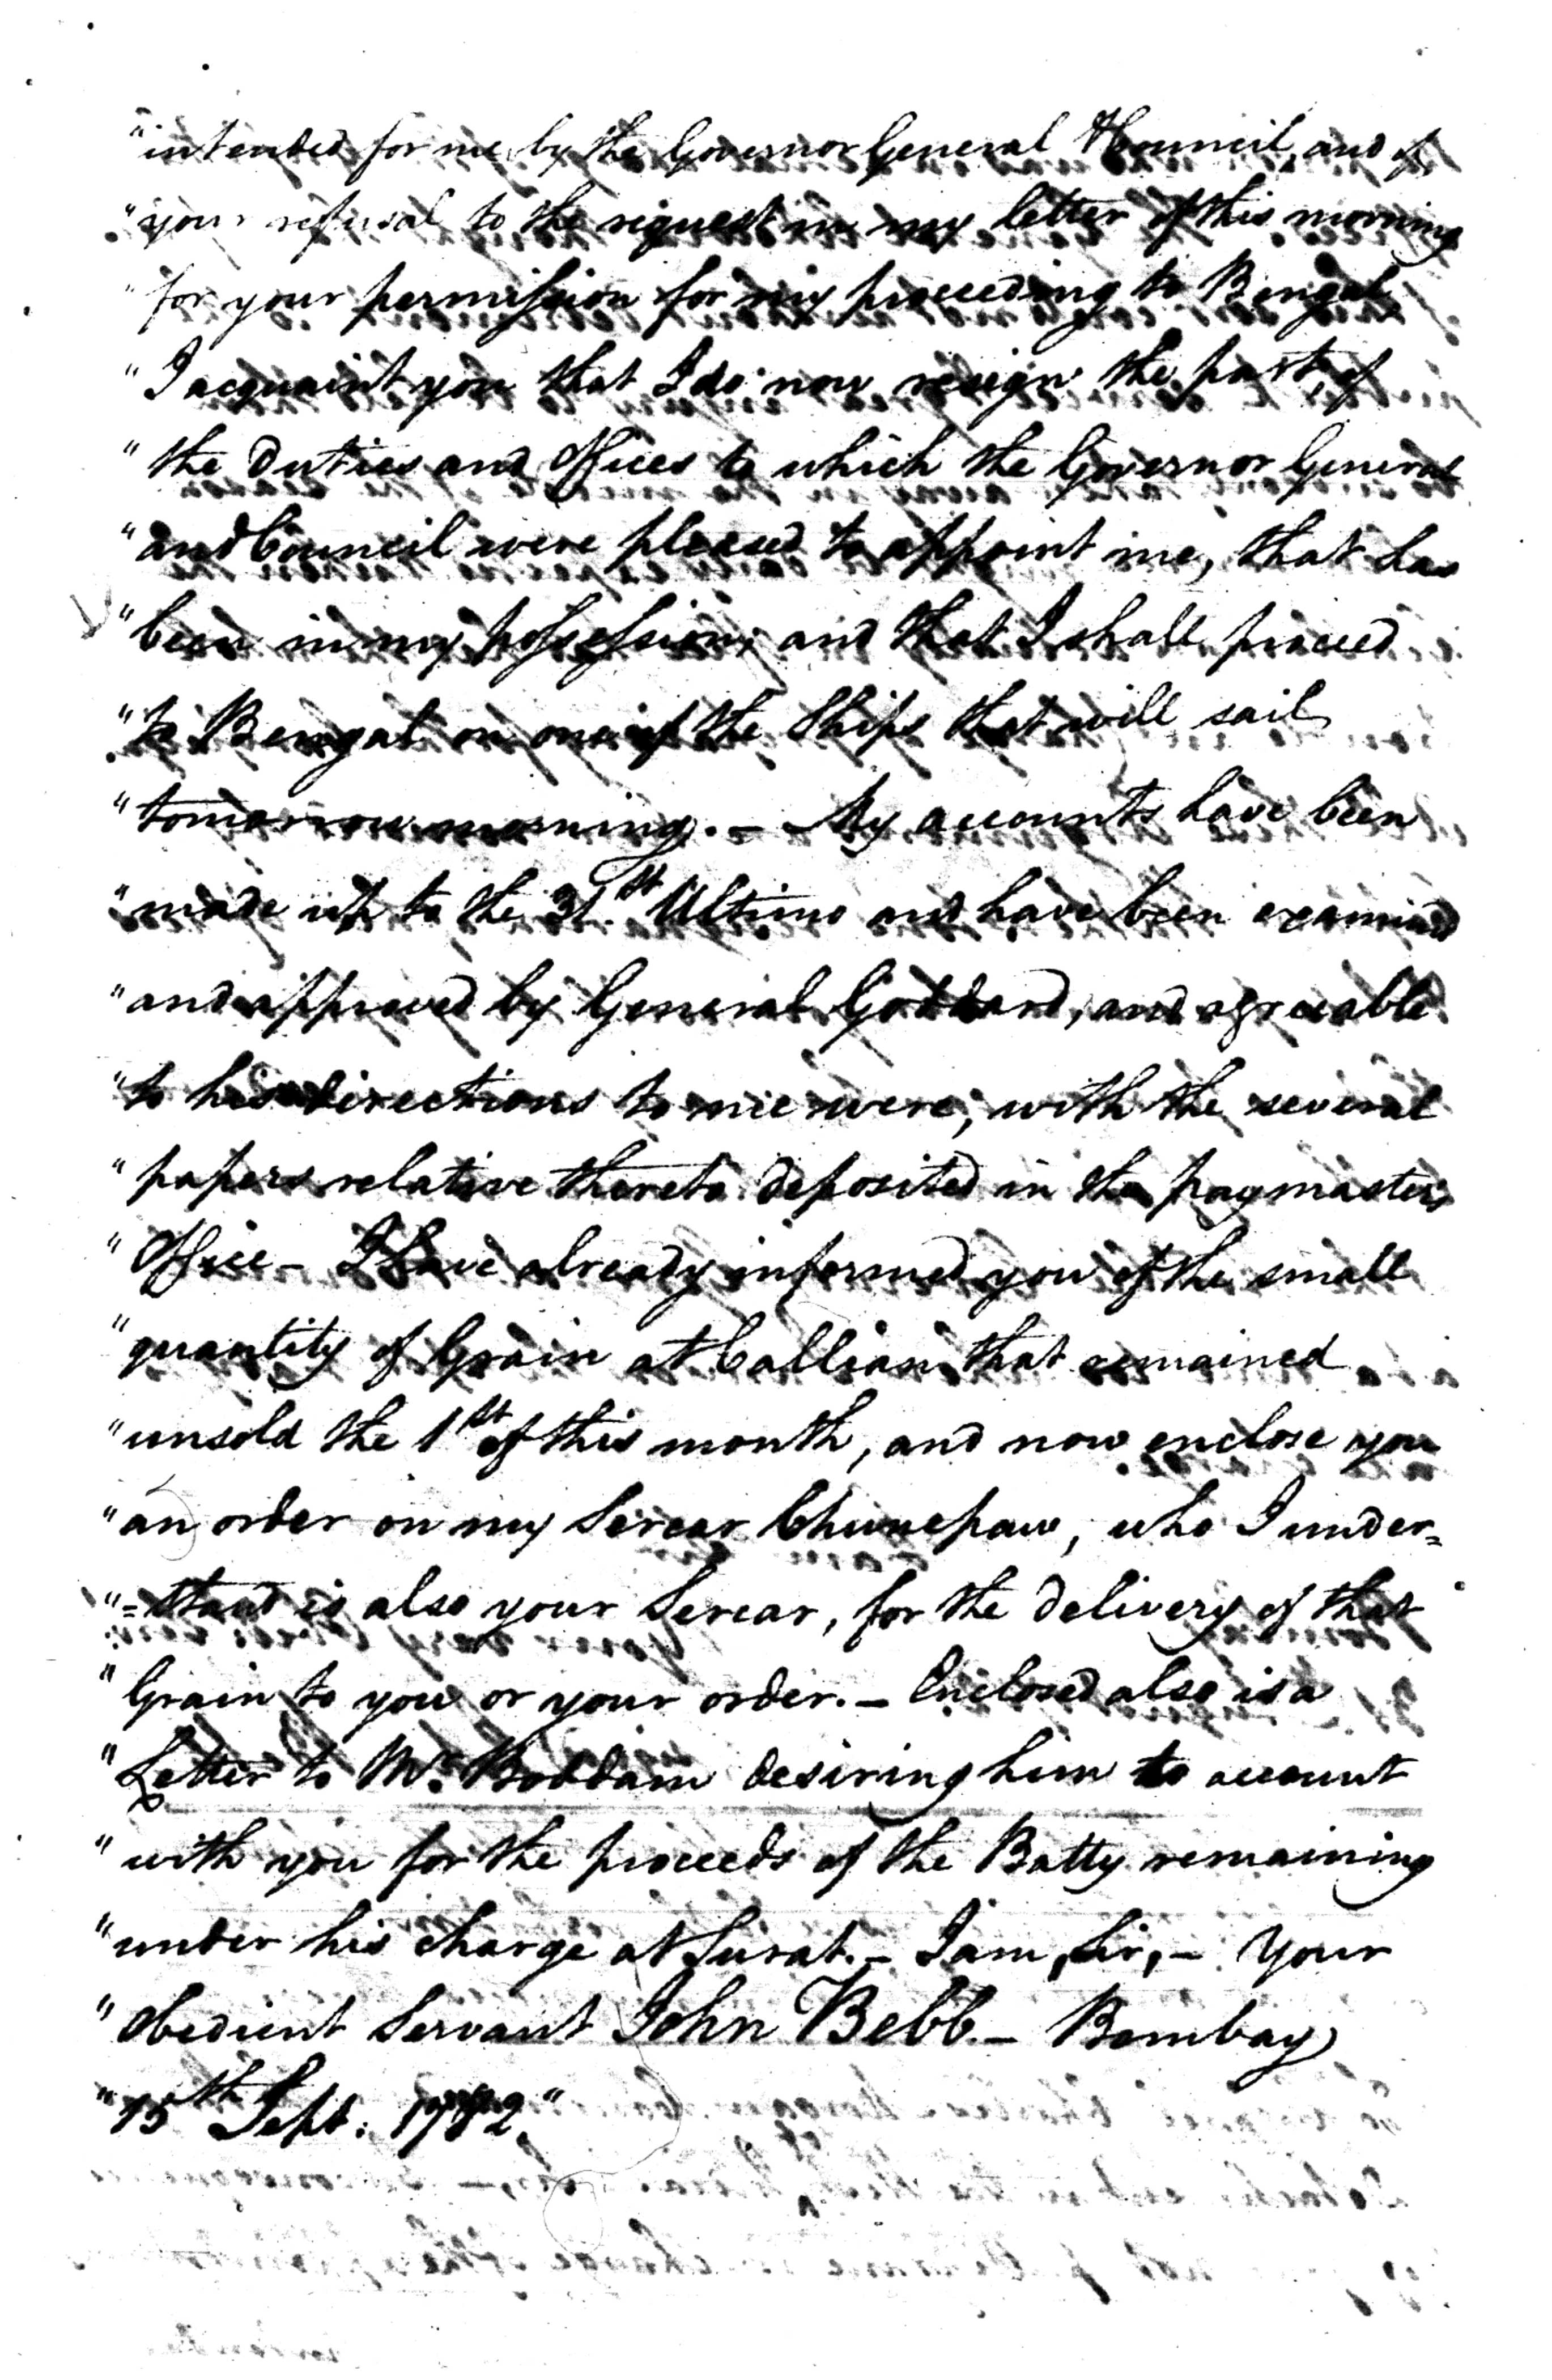 "intended for me by the Governor General & Council, and of
"your refusal to the request in my letter of this morning
"for your permission for my proceeding to Bengal
"I acquaint you that I do now resign the part of
"the Duties and Offices to which the Governor General
"and Council were pleased to appoint me, that has
"been in my possession; and that I shall proceed
"to Bengal on one of the Ships that will sail
"tomorrow morning. - My accounts have been
"made up to the 31.st Ultimo and have been examined
"and approved by General Goddard, and agreeable
"to his directions to me were, with the several
"papers relative thereto deposited in the paymasters
"Office - I have already informed you of the small
"quantity of Grain at Callian that remained
"unsold the 1st of this month, and now enclose you
"an order on my Sercar Chunepaw, who I under=
"=stand is also your Sercar, for the delivery of that
"Grain to you or your order. - Enclosed also is a
"Letter to Mr. Boddam desiring him to account
"with you for the proceeds of the Batty remaining
"under his charge at Surat. - I am, Sir, - Your
"Obedient Servant John Bebb. - Bombay
"15th Sept: 1782."